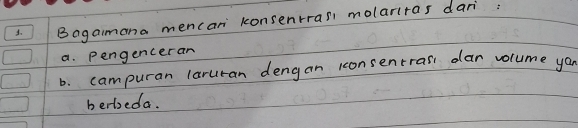 1. Bagaimana mencari konsentrasi molaritas dari :
a. Pengenceran
b. campuran larutan dengan konsentrasi dan volume yan
berbeda.